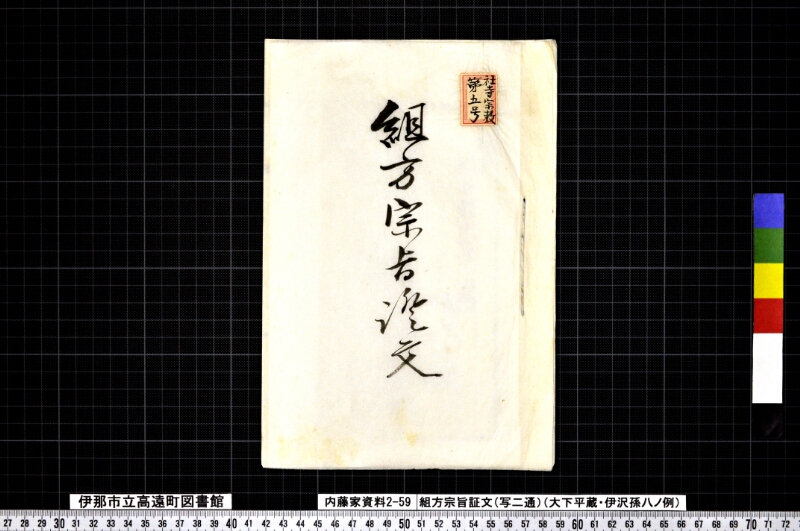 社寺宗教
第五号
組方宗旨證文
伊那市立高遠町図書館
内藤家資料2-59 組方宗旨証文(写二通)(大下平蔵・伊沢孫八ノ例)
27 28 29 30 31 32 33 34 35 36 37 38 39 40 41 42 43 44 45 46 47 48 49 50 51 52 53 54 55 56 57 58 59 60 61 62 63 64 65 66 67 68 69 70 71 72